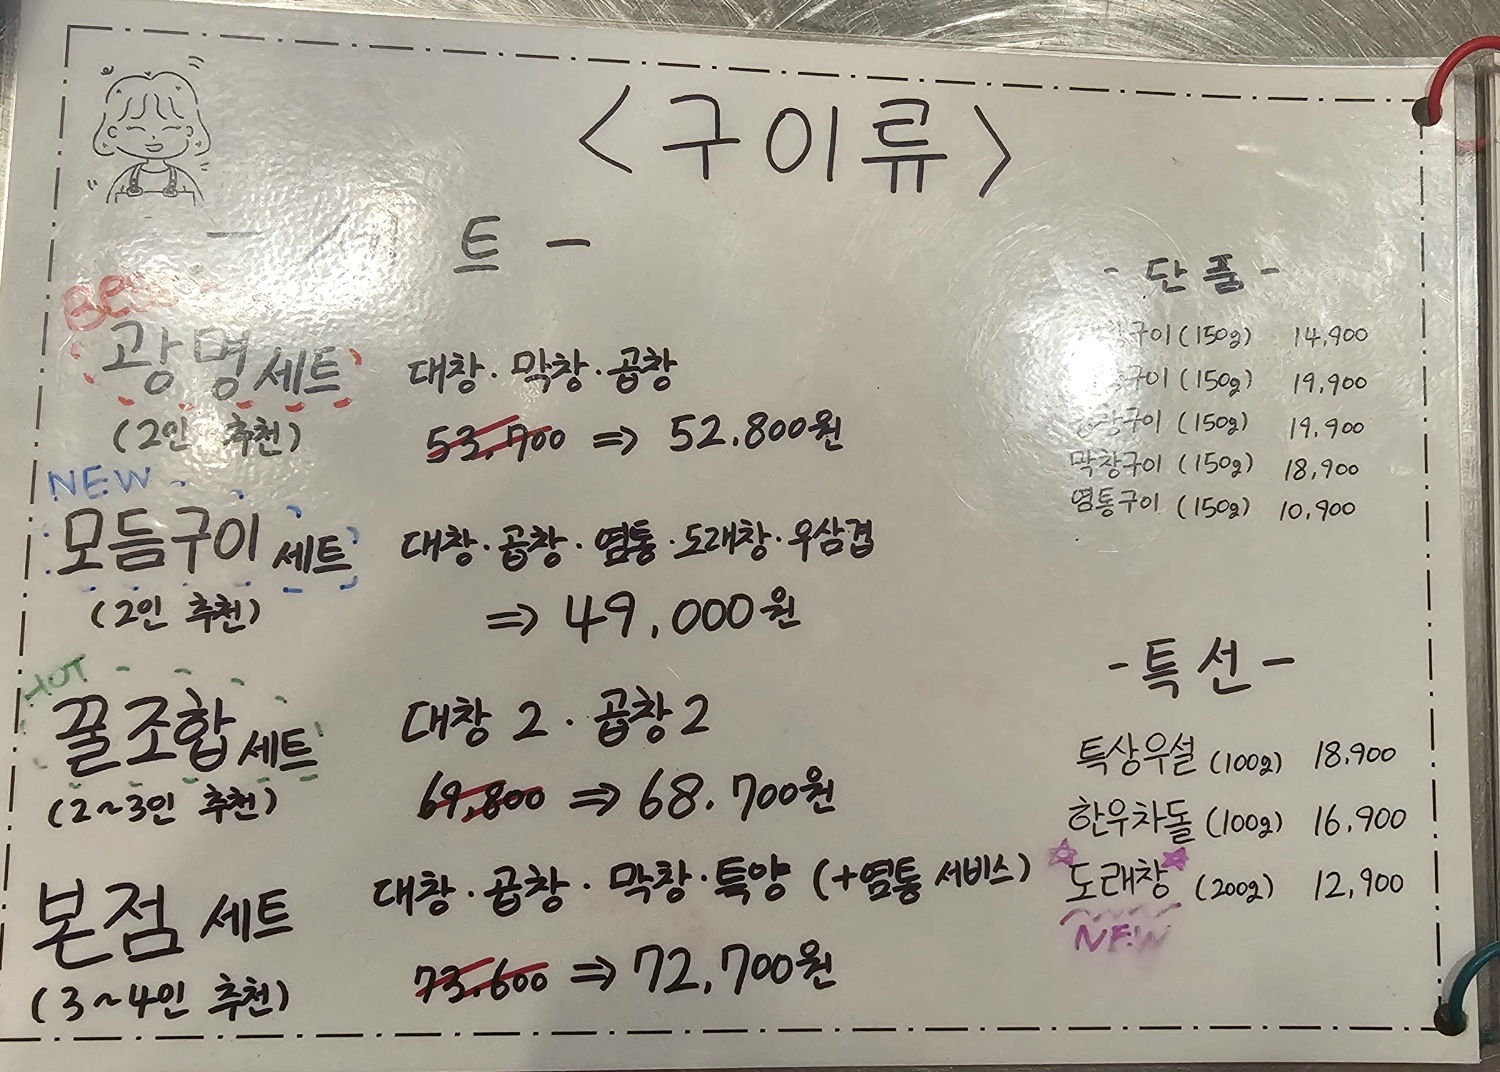 <구이류>
트 -
BEST
광명세트
대창·막창·곱창
(2인 추천)
53,700 ⇒ 52.800원
NEW
모듬구이 세트
대창·곱창·염통·도래창·우삼겹
(2인 추천)
⇒ 49,000원
HOT
꿀조합세트
대창 2 · 곱창 2
(2~3인 추천)
69,800 ⇒ 68.700원
본점 세트
대창·곱창·막창·특양 (+염통 서비스)
(3~4인 추천)
73,600 ⇒ 72,700원
- 단품 -
구이 (150g) 14,900
구이 (150g) 19,900
구이 (150g) 19,900
막창구이 (150g) 18,900
염통구이 (150g) 10,900
- 특선 -
특상우설 (100g) 18,900
한우차돌 (100g) 16,900
도래창 (200g) 12,900
NEW